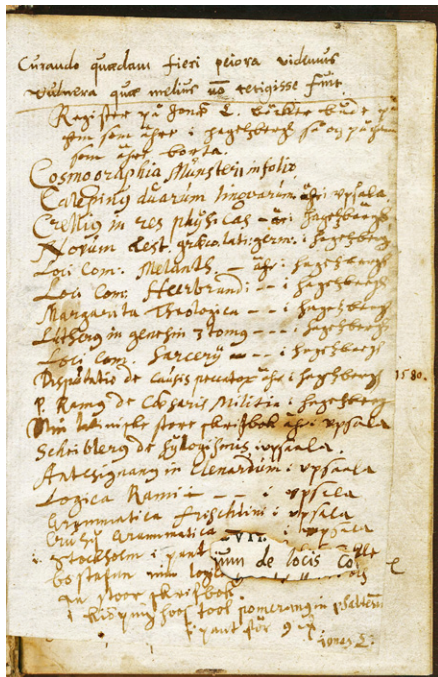 Curando quædam fieri peiora videmus
Vulnera quæ melius nõ tetigisse fuit.
Register på Jonæ E. böcker både på
them som äher i hagelsbergh så og på them
som äher borta.
Cosmographia Münsteri in folio
Calepinus duarum linguarum ähr i vpsala
Crellius in res physicas – är i hagelsbergh
Novum test. græco.lati:germ: i hagelsbergh
Loci Com: Melanth – – ähr i hagelsbergh
Loci Com: Heerbrandi – – i hagelsbergh
Margarita Theologica – – – i hagelsbergh
Lutherg in genesin 3 tomg – – – i hagelsbergh
Loci Com: Sarcerij – – – i hagelsbergh
Disputatio de causis peccatorum ähr i hagelsbergh 1580.
P. Ramg de Cæsaris Militia i hagelsbergh
Min latiniske store skrifbok ähr i vpsala
Scheiblerg de syllogismis i vpsala
Antesignang in Clenardum i vpsala
Logica Rami – – – i vpsala
Grammatica Frischlini i vpsala
Grammatica – VII – i vpsala
i Stockholm i pant
ium de locis Co
bostafan min
en stoor skrifbok
i hoos pomerang in psalterium
i pant för 9
Jonas E: